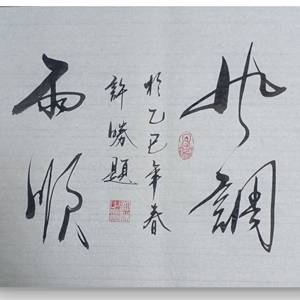 风調
雨順
於乙巳年春
許勝題